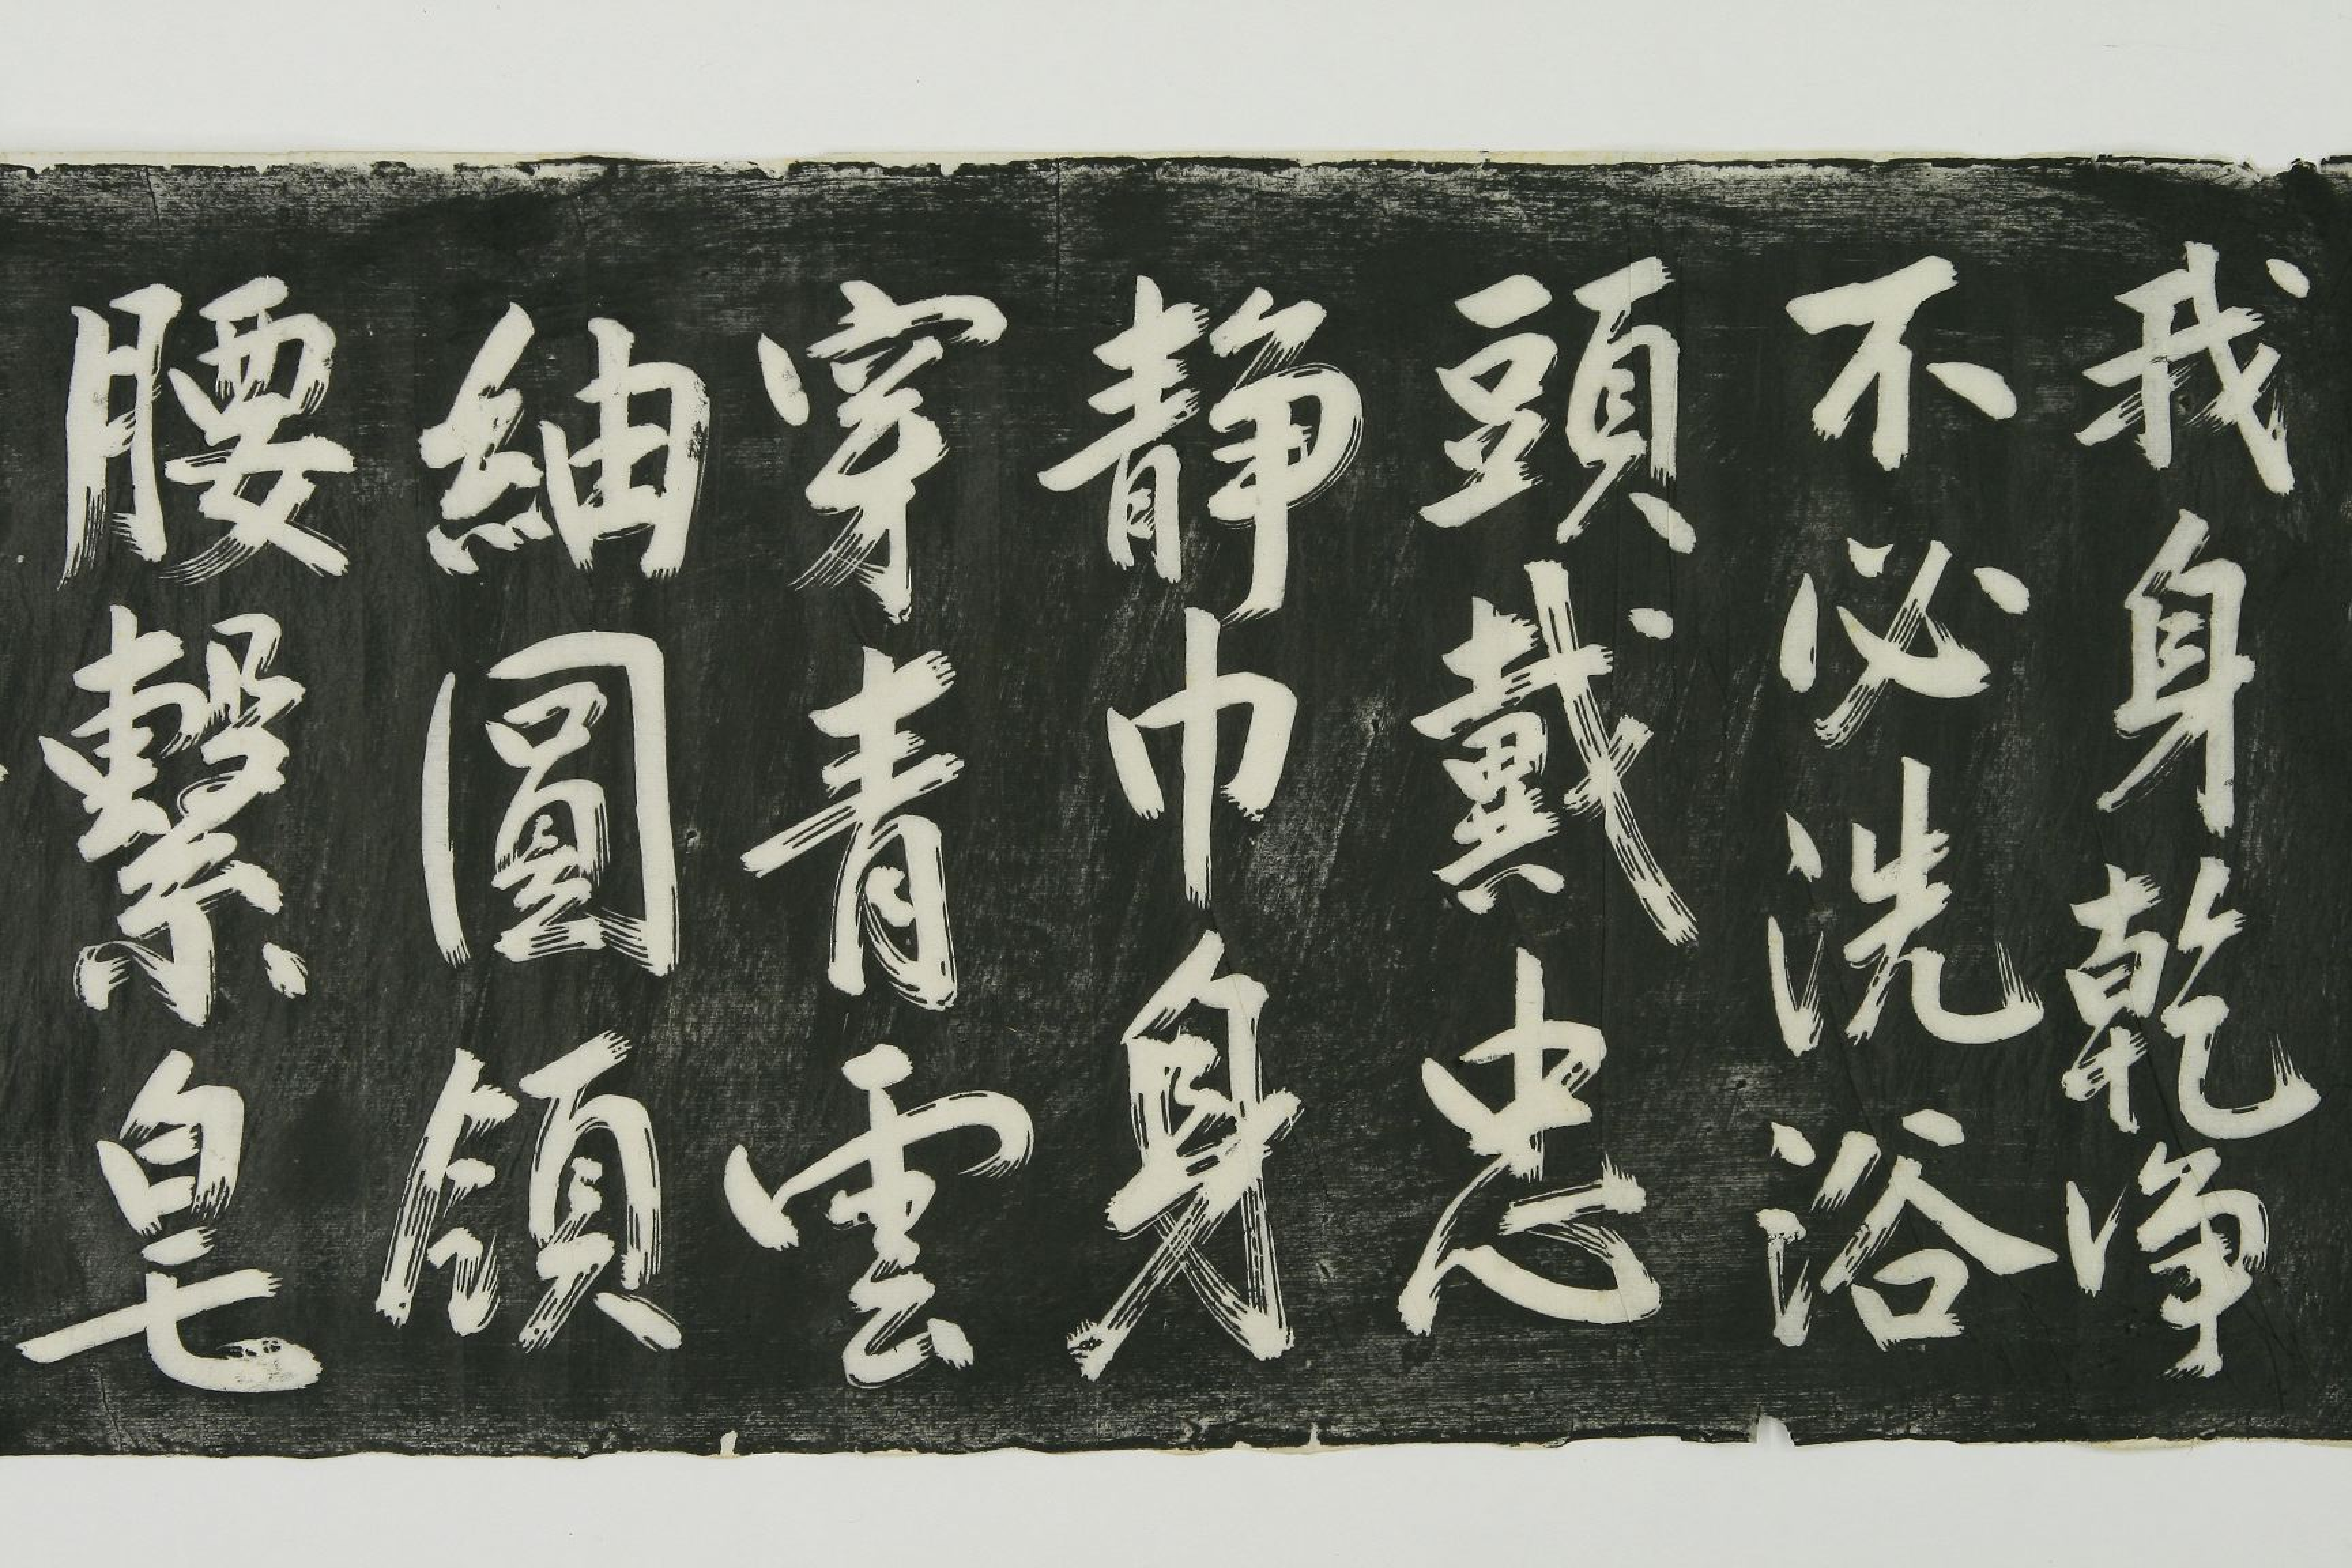 我身乾浄
不必洗浴
頭戴忠
静巾身
穿青雲
紬圓領
腰繫皂